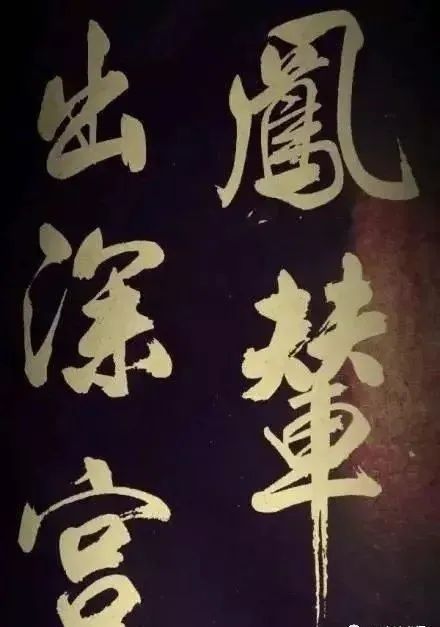 鳳輦
出深宫